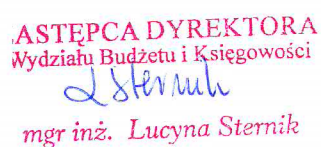 ASTĘPCA DYREKTORA
Wydziału Budżetu i Księgowości
LSternik
mgr inż. Lucyna Sternik